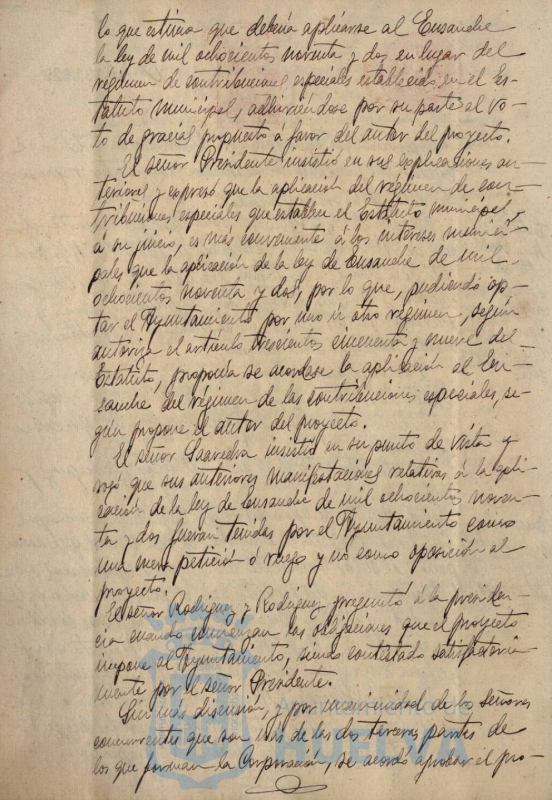 lo que estima que debería aplicarse al Ensanche
la ley de mil ochocientos noventa y dos, en lugar del
régimen de contribuciones especiales establecido en el Es-
tatuto municipal, adhiriéndose por su parte al vo-
to de gracias propuesto á favor del autor del proyecto.
El señor Presidente insistió en sus explicaciones an-
teriores y expresó que la aplicación del régimen de con-
tribuciones especiales que establece el Estatuto municipal,
á su juicio, es más conveniente á los intereses munici-
pales que la aplicación de la ley de Ensanche de mil
ochocientos noventa y dos, por lo que, pudiendo op-
tar el Ayuntamiento por uno ú otro régimen, según
autoriza el artículo trescientos cincuenta y nueve del
Estatuto, proponía se acordase la aplicación al En-
sanche del régimen de las contribuciones especiales, se-
gún propone el autor del proyecto.
El señor Saavedra insistió en su punto de vista y
rogó que sus anteriores manifestaciones relativas á la apli-
cación de la ley de Ensanche de mil ochocientos noven-
ta y dos fueran tenidas por el Ayuntamiento como
una mera petición ó ruego y no como oposición al
proyecto.
El señor Rodríguez y Rodríguez preguntó á la presiden-
cia cuando comienzan las obligaciones que el proyecto
impone al Ayuntamiento, siendo contestado satisfactoria-
mente por el señor Presidente.
Sin más discusión, y por unanimidad de los señores
concurrentes que son más de las dos terceras partes de
los que forman la Corporación, se acordó aprobar el pro-
HUELVA